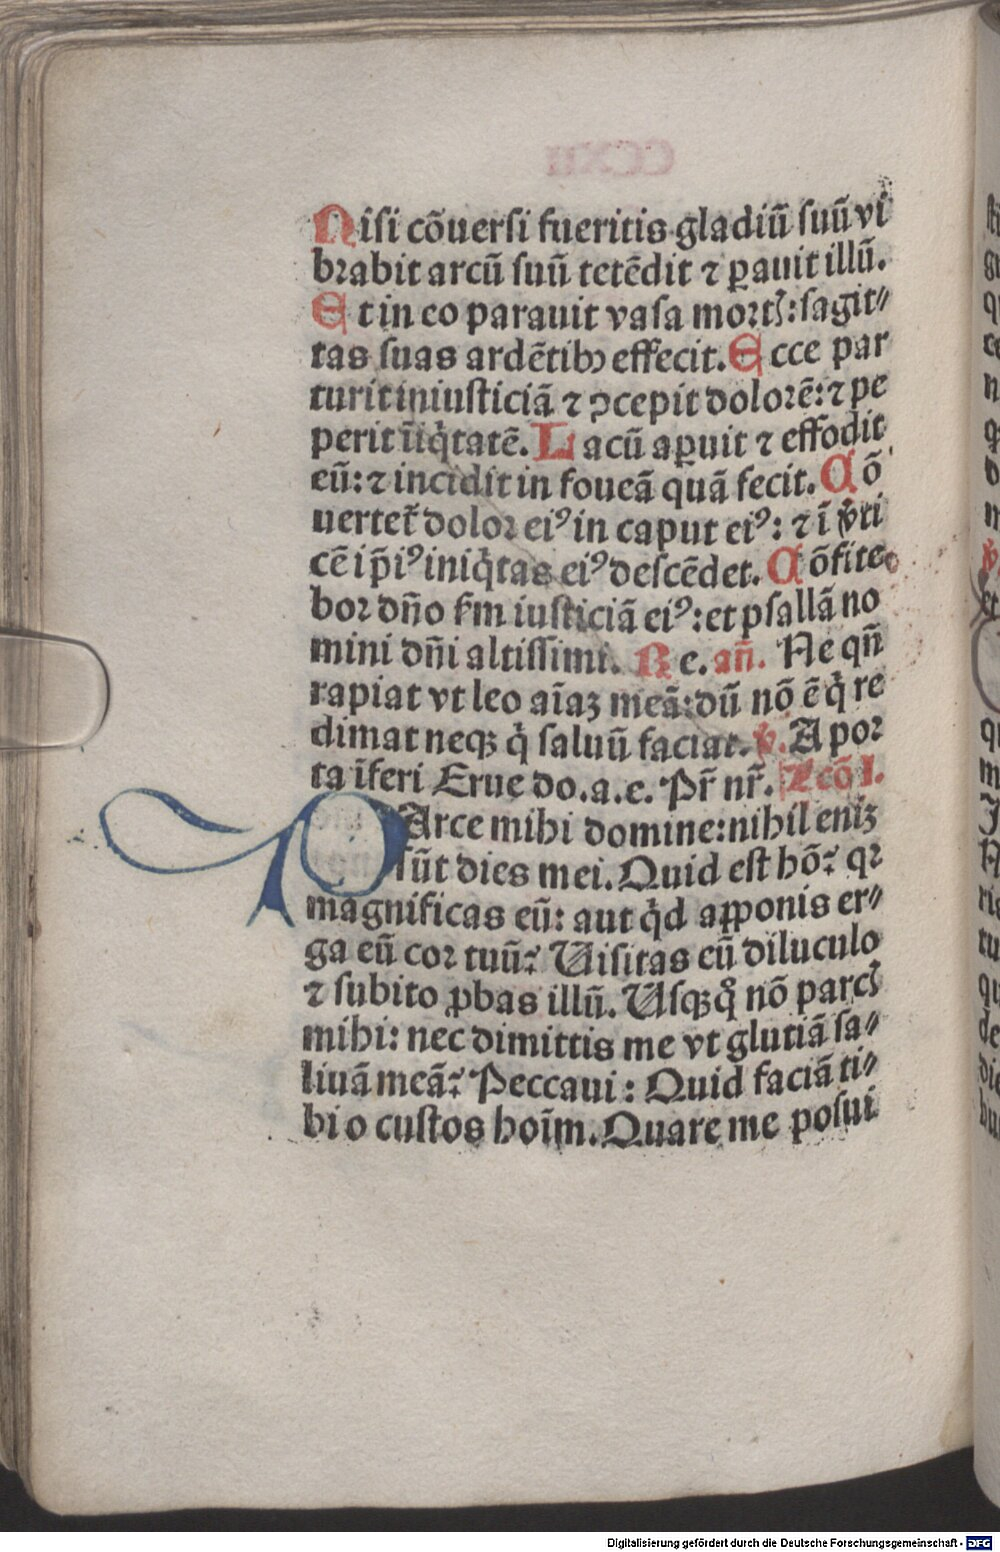 Nisi cõuersi fueritis gladiũ suũ vi
brabit arcũ suũ tetẽdit ⁊ ꝑauit illũ.
Et in eo parauit vasa mortꝭ: sagit⸗
tas suas ardẽtibꝰ effecit. Ecce par
turit iniusticiã ⁊ ꝯcepit dolorẽ: ⁊ pe
perit ĩiq̇tatẽ. Lacũ aꝑuit ⁊ effodit
eũ: ⁊ incidit in foueã quã fecit. Cõ
uertet̃ dolor eiꝰ in caput eiꝰ: ⁊ ĩ v̾ti
cẽ ip̃iꝰ iniq̇tas eiꝰ descẽdet. Cõfite
bor dño ẜm iusticiã eiꝰ: et psallã no
mini dñi altissimi. Re. añ. Ne qñ
rapiat vt leo aĩaꝫ meã: dũ nõ ẽ q̇ re
dimat neqꝫ q̇ saluũ faciat. ꝟ. A por
ta ĩferi Erue do. a. e. Pr̃ nr̃. Lcõ I.
PArce mihi domine: nihil eniꝫ
sũt dies mei. Quid est hõ? qꝛ
magnificas eũ: aut q̇d apponis er⸗
ga eũ cor tuũ? Uisitas eũ diluculo
⁊ subito ꝓbas illũ. Usqꝫq̊ nõ parcꝭ
mihi: nec dimittis me vt glutiã sa⸗
liuã meã? Peccaui: Quid faciã ti⸗
bi o custos hoĩm. Quare me posui
Digitalisierung gefördert durch die Deutsche Forschungsgemeinschaft - DFG